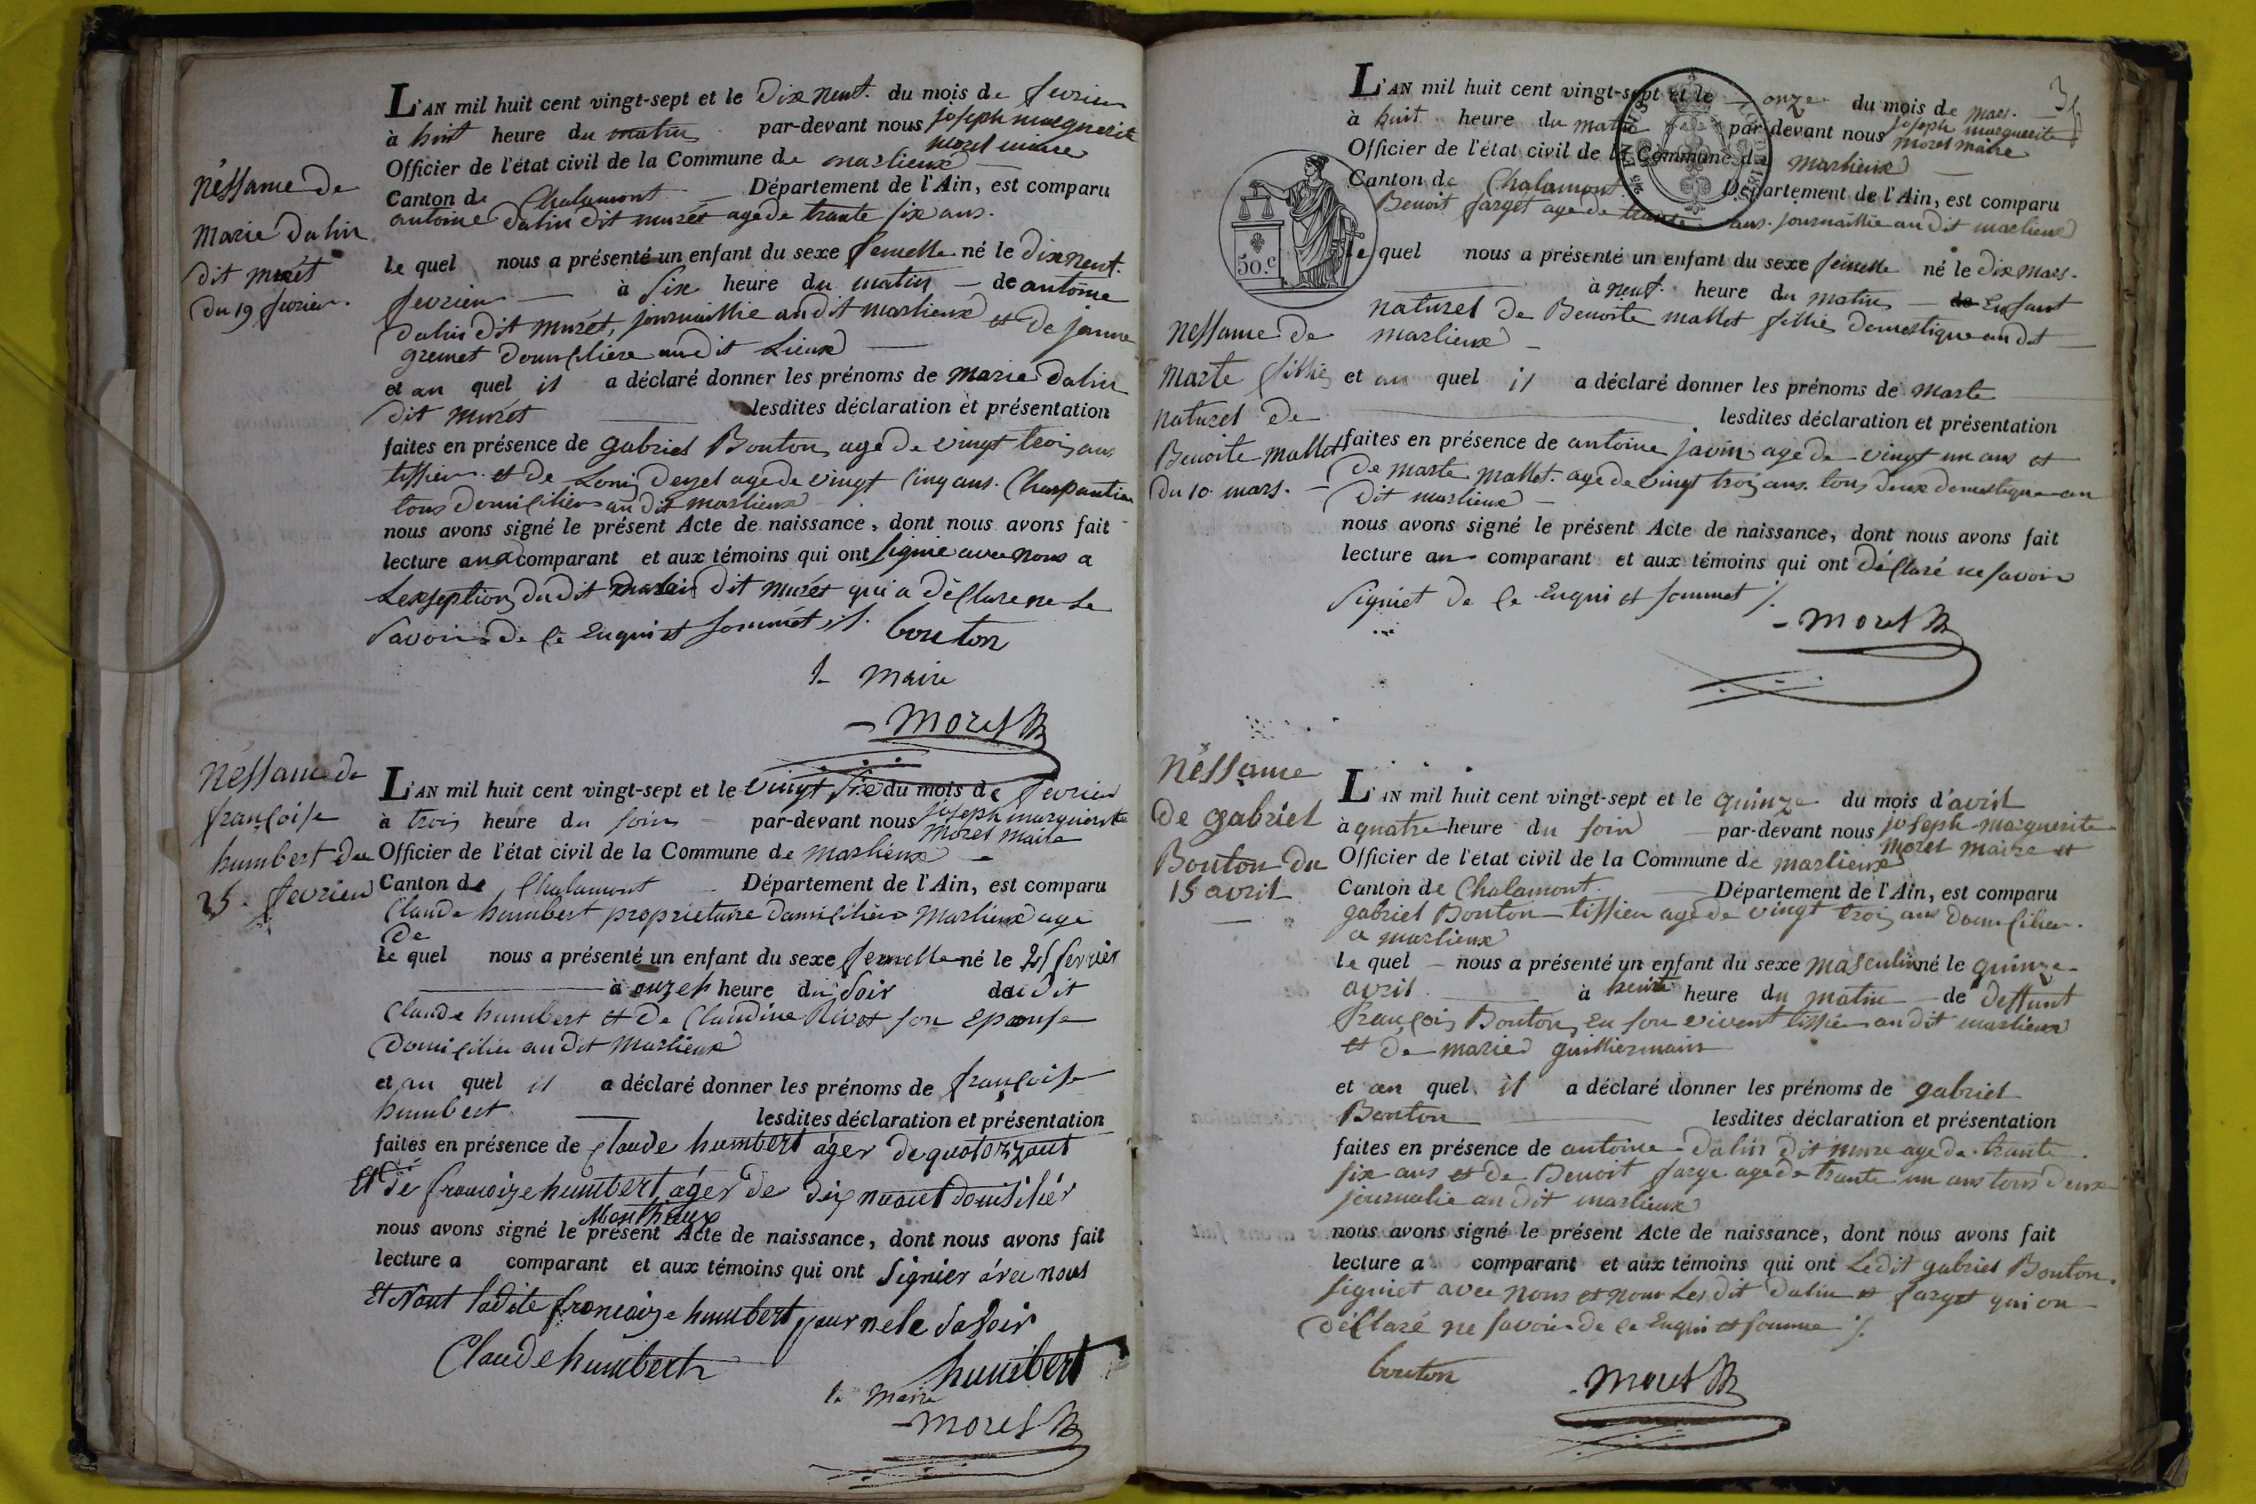 L'AN mil huit cent vingt-sept et le Dix neuf. du mois de fevrier
à huit heure du matin par-devant nous joseph marguerite
morel maire
Officier de l'état civil de la Commune de marlieux
Canton de Chalamont Département de l'Ain, est comparu
antoine dalin dit muret age de trante six ans.
le quel nous a présenté un enfant du sexe femelle né le dix neuf.
fevrier à six heure du matin de antoine
dalin dit murét, journaillie au dit marlieux et de janne
gremet domiciliere au dit Lieux
et au quel il a déclaré donner les prénoms de marie dalin
dit murét lesdites déclaration et présentation
faites en présence de gabriel Bouton age de vingt trois ans
tissier et de Loui age de vingt cinq ans. Charpantier
tous domicilier au dit marlieux
nous avons signé le présent Acte de naissance, dont nous avons fait
lecture aux comparant et aux témoins qui ont signié avec nous a
Lexseption du dit dalin dit murét qui a déclare ne le
savoir de ce Enqui et sommét ./.
bouton
le maire
morel
nèssance de
marie dalin
dit murét
du 19 fevrier.
L'AN mil huit cent vingt-sept et le vingt six du mois de fevrier
à trois heure du soir par-devant nous joseph marguerite
morel maire
Officier de l'état civil de la Commune de marlieux
Canton de Chalamont Département de l'Ain, est comparu
Claude humbert proprietaire domicilier marlieux age
de
le quel nous a présenté un enfant du sexe femelle né le 25 fevrier
à onzeh heure du soir dudit
Claude humbert et de Claudine Rivot son Epouse
domicilié au dit marlieux
et au quel il a déclaré donner les prénoms de françoise
humbert. lesdites déclaration et présentation
faites en présence de Claude humbert áger de quatorzant
Et de francoize humbert áger de dix domisiliér
nous avons signé le présent Acte de naissance, dont nous avons fait
lecture a comparant et aux témoins qui ont signier ávec nous
Et Nont ladite francoize humbert pour ne le Savoir
Claude humbert
humbert
le maire
morel
nèssance de
françoise
humbert du
25. fevrier
L'AN mil huit cent vingt-sept et le onze du mois de mars.
à huit heure du matin par-devant nous joseph marguerite
morel maire
Officier de l'état civil de la Commune de marlieux
Canton de Chalamont Département de l'Ain, est comparu
Benoit farget age de trante ans. journaillie au dit marlieux
50.c
le quel nous a présenté un enfant du sexe femelle né le dix mars.
à neuf. heure du matin de Enfant
naturel de Benoite mallet fillie domestique au dit
marlieux
et au quel il a déclaré donner les prénoms de marte
lesdites déclaration et présentation
faites en présence de antoine javin age de vingt un ans et
de marte mallet. age de vingt trois ans. tous deux domestique au
dit marlieux
nous avons signé le présent Acte de naissance, dont nous avons fait
lecture au comparant et aux témoins qui ont déclaré ne savoir
signiet de ce Enqui et sommet ./.
morel
nessance de
marte fillie
naturel de
Benoite mallet
du 10. mars.
L'AN mil huit cent vingt-sept et le quinze du mois d'avril
à quatre heure du soir par-devant nous joseph marguerite
morel maire et
Officier de l'état civil de la Commune de marlieux
Canton de Chalamont. Département de l'Ain, est comparu
gabriel Bouton tissieu age de vingt trois ans domicilier.
a marlieux
le quel nous a présenté un enfant du sexe masculin né le quinze
avril à heure du matin de deffunt
françois Bouton en son vivent tissier au dit marlieux
et de marie guilliermain
et au quel il a déclaré donner les prénoms de gabriel
Bouton lesdites déclaration et présentation
faites en présence de antoine dalin dit mure age de trante
six ans et de Benoit farge age de trante un ans tous deux
journalie au dit marlieux
nous avons signé le présent Acte de naissance, dont nous avons fait
lecture a comparant et aux témoins qui ont Ledit gabriel Bouton.
signiet avec nous et nour Les dit dalin et farget qui on
déclaré ne savoir de ce Enqui et somme ./.
bouton
morel
nèssance
de gabriel
Bouton du
15 avril